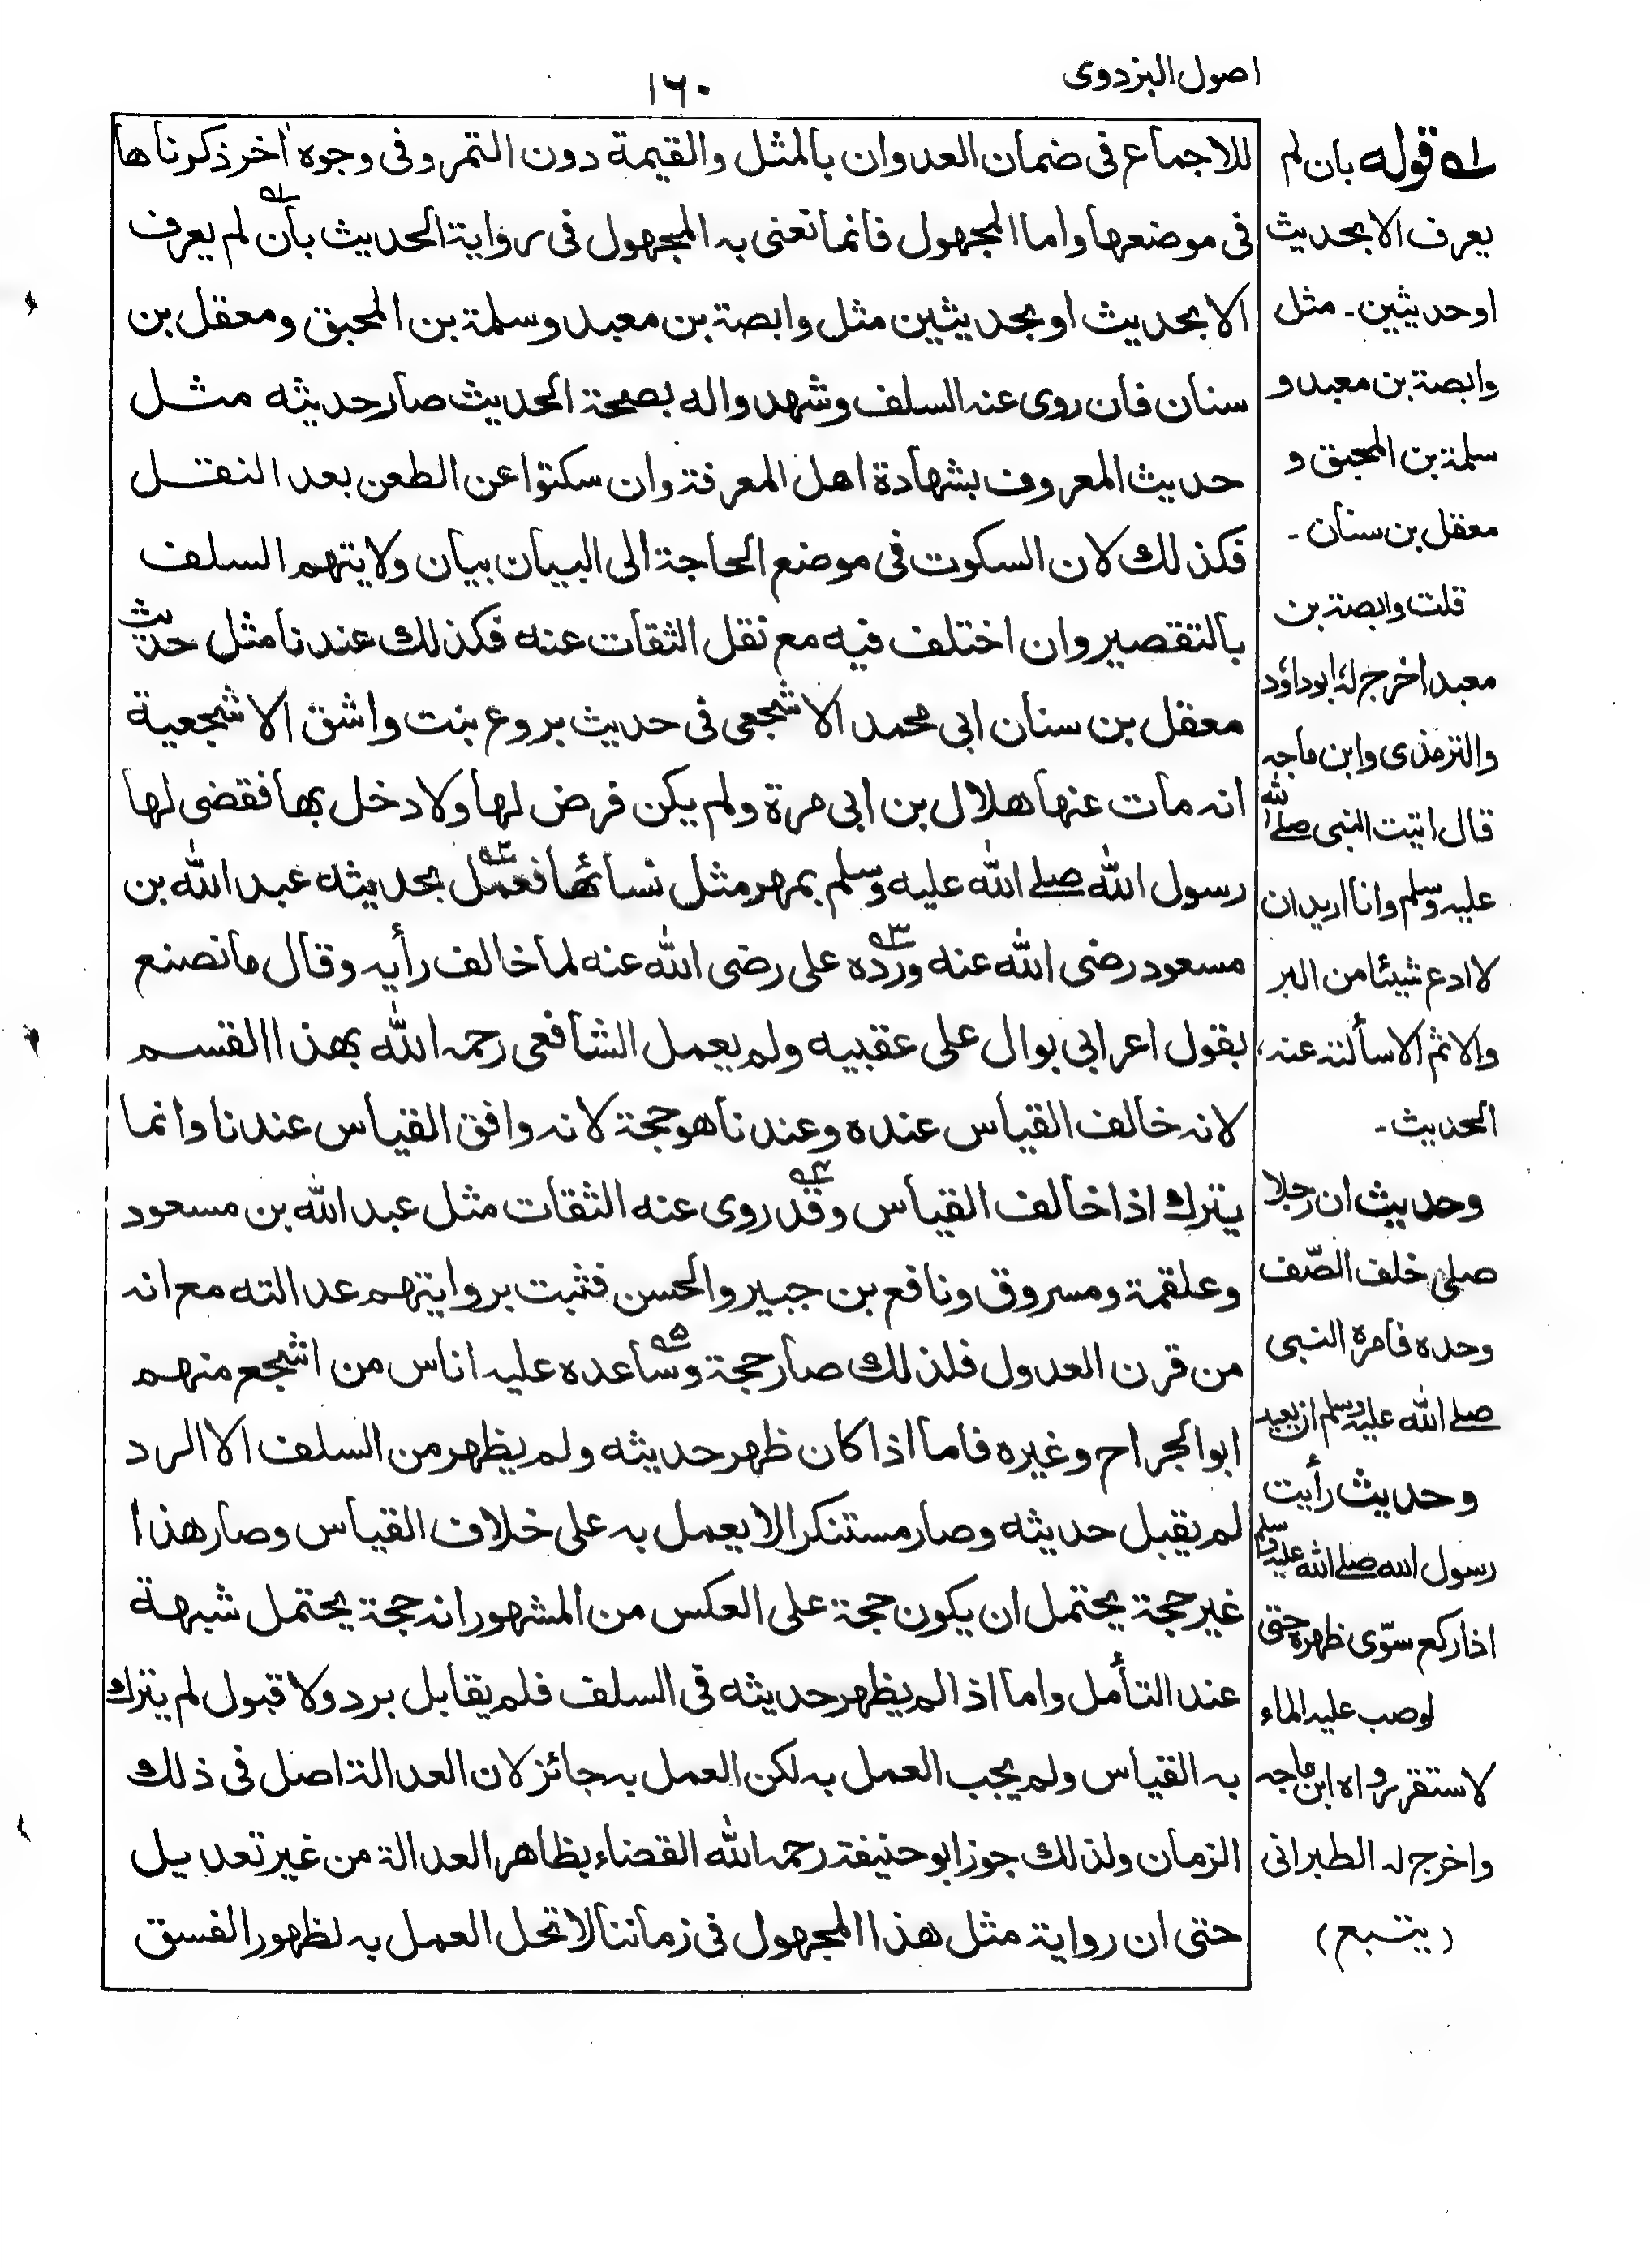 اصول البزدوی
۱۶۰
للاجماع فی ضمان العدوان بالمثل والقیمة دون التمر وفی وجوه اُخر ذکرناها
فی موضعها واما المجهول فانما نعنی به المجهول فی روایة الحدیث بان لم یعرف
الا بحدیث او بحدیثین مثل وابصة بن معبد وسلمة بن المحبق ومعقل بن
سنان فان روی عنه السلف وشهدوا له بصحة الحدیث صار حدیثه مثل
حدیث المعروف بشهادة اهل المعرفة وان سکتوا عن الطعن بعد النقل
فکذلك لان السکوت فی موضع الحاجة الی البیان بیان ولا یتهم السلف
بالتقصیر وان اختلف فیه مع نقل الثقات عنه فکذلك عندنا مثل حدیث
معقل بن سنان ابی محمد الاشجعی فی حدیث بروع بنت واشق الاشجعیة
انه مات عنها هلال بن ابی مرة ولم یکن فرض لها ولا دخل بها فقضی لها
رسول الله صلے الله علیه وسلم بمهر مثل نسائها فعمل بحدیثه عبد الله بن
مسعود رضی الله عنه ورده علی رضی الله عنه لما خالف رأیه وقال ما نصنع
بقول اعرابی بوال علی عقبیه ولم یعمل الشافعی رحمه الله بهذا القسم
لانه خالف القیاس عنده وعندنا هو حجة لانه وافق القیاس عندنا وانما
یترك اذا خالف القیاس وقد روی عنه الثقات مثل عبد الله بن مسعود
وعلقمة ومسروق ونافع بن جبیر والحسن فثبت بروایتهم عدالته مع انه
من قرن العدول فلذلك صار حجة وساعده علیه اناس من اشجع منهم
ابو الجراح وغیره فاما اذا کان ظهر حدیثه ولم یظهر من السلف الا الرد
لم یقبل حدیثه وصار مستنکرا لا یعمل به علی خلاف القیاس وصار هذا
غیر حجة یحتمل ان یکون حجة علی العکس من المشهور انه حجة یحتمل شبهة
عند التأمل واما اذا لم یظهر حدیثه فی السلف فلم یقابل برد ولا قبول لم یترك
به القیاس ولم یجب العمل به لکن العمل به جائز لان العدالة اصل فی ذلك
الزمان ولذلك جوز ابو حنیفة رحمه الله القضاء بظاهر العدالة من غیر تعدیل
حتی ان روایة مثل هذا المجهول فی زماننا لا تحل العمل به لظهور الفسق
۱ه قوله بان لم
یعرف الا بحدیث
او حدیثین۔ مثل
وابصة بن معبد و
سلمة بن المحبق و
معقل بن سنان۔
قلت وابصة بن
معبد اخرج له ابوداؤد
والترمذی وابن ماجه
قال اتیت النبی صلے الله
علیه وسلم وانا ارید ان
لا ادع شیئا من البر
والاثم الا سألته عنه،
الحدیث۔
وحدیث ان رجلا
صلی خلف الصّف
وحده فامره النبی
صلے الله علیه وسلم ان یعید
وحدیث رأیت
رسول الله صلے الله علیه وسلم
اذا رکع سوّی ظهره حتی
لو صب علیه الماء
لاستقر رواه ابن ماجه
واخرج له الطبرانی
(یتبع)